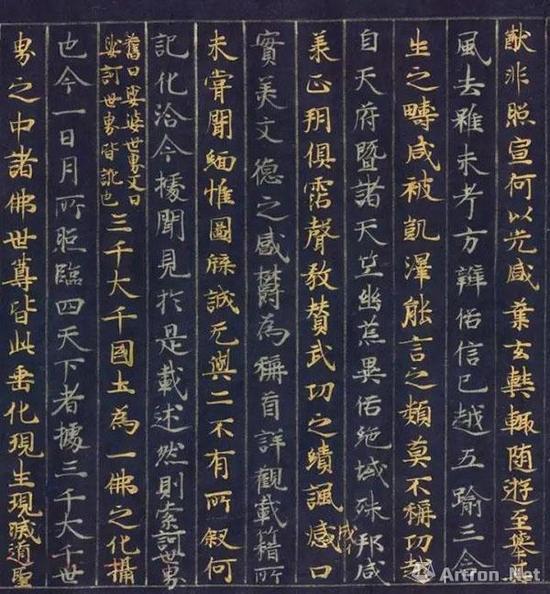 猷非照宣何以光咸業玄奘輙随遊至舉
風去雖未考方辨俗信已越五踰三含
生之疇咸被凱澤能言之類莫不稱功越
自天府暨諸天竺幽荒異俗絶域殊邦咸
羕正朔俱霑聲教賛武功之績諷感成口
實美文德之感欝為稱首詳觀載籍所
未甞聞緬惟圖牒誠无與二不有所叙何
記化洽今據聞見於是載述然則索訶世界
舊曰娑婆世界又曰
娑訶世界皆訛也
三千大千國土為一佛之化攝
也今一日月所照臨四天下者據三千大千世
界之中諸佛世尊皆此垂化現生現滅道聖
Artron.Net